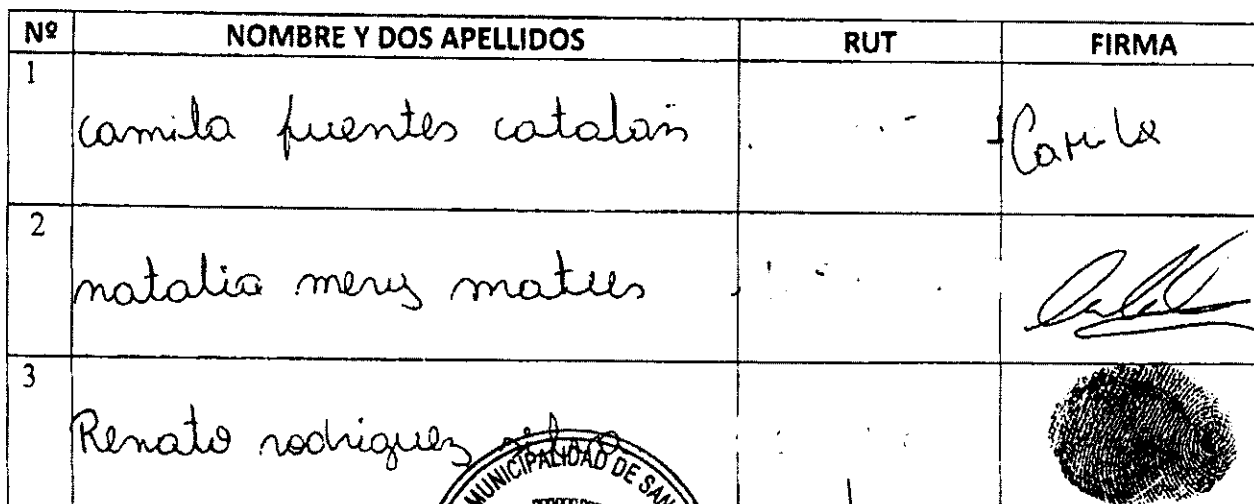 Nº NOMBRE Y DOS APELLIDOS RUT FIRMA
1 camila fuentes catalán Camila
2 natalia
3 Renato rodriguez
MUNICIPALIDAD DE SAN